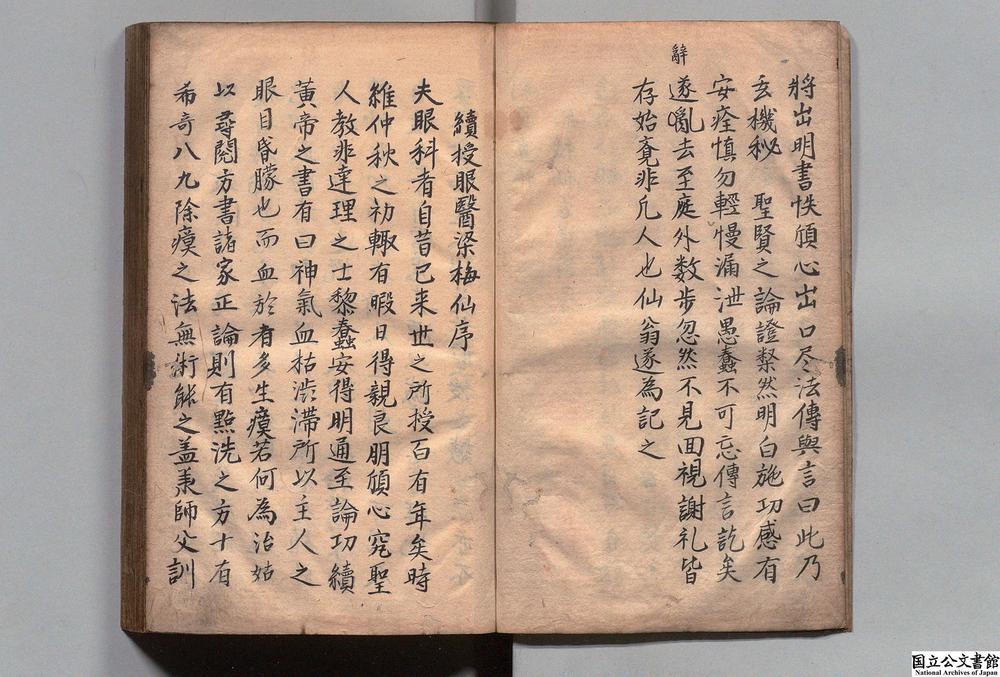 將出明書快頎心出口尽法傳與言曰此乃
玄機秘 聖賢之論證槩然明白施功感有
安痊慎勿輕慢漏泄愚蠢不可忘傳言訖矣
辭
遂亂去至庭外数步忽然不見回視謝礼皆
存始竟非凡人也仙翁遂為記之
續授眼醫梁梅仙序
夫眼科者自昔已来世之所授百有年矣時
維仲秋之初輙有暇日得親良朋頎心究聖
人教非達理之士黎蠢安得明通至論功續
黄帝之書有曰神氣血枯澁滞所以主人之
眼目昏朦也而血於者多生瘼若何為治姑
以尋閱方書諸家正論則有點洗之方十有
希奇八九除瘼之法無術能之盖秉師父訓
国立公文書館
National Archives of Japan